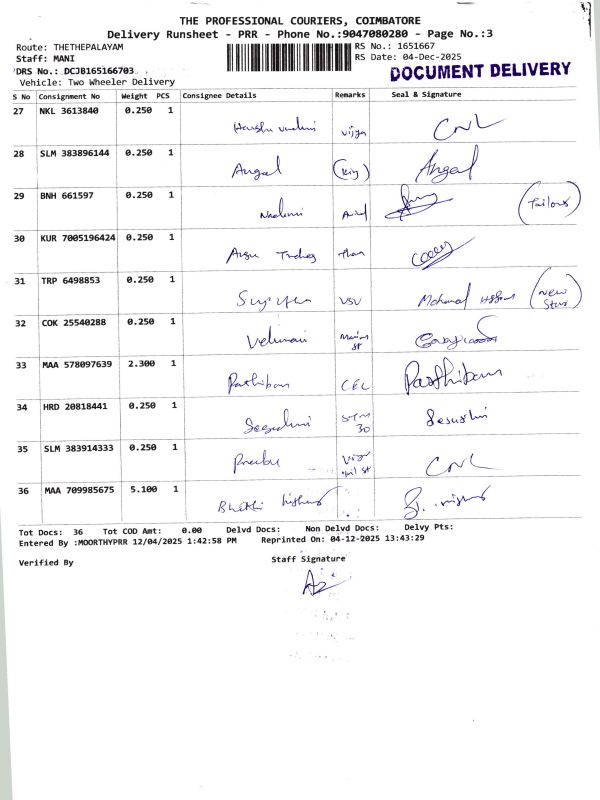 THE PROFESSIONAL COURIERS, COIMBATORE
Delivery Runsheet - PRR - Phone No.:9047080280 - Page No.:3
Route: THETHEPALAYAM RS No.: 1651667
Staff: MANI RS Date: 04-Dec-2025
DRS No.: DCJB165166703
Vehicle: Two Wheeler Delivery
DOCUMENT DELIVERY
S No Consignment No Weight PCS Consignee Details Remarks Seal & Signature
27 NKL 3613840 0.250 1
Vijya CNL
28 SLM 383896144 0.250 1
Angal (King) Angal
29 BNH 661597 0.250 1
(Tailors)
30 KUR 7005196424 0.250 1
Than
31 TRP 6498853 0.250 1
VSV Mohamad (New Star)
32 COK 25540288 0.250 1
Velmani
33 MAA 578097639 2.300 1
Parthiban CEL Parthiban
34 HRD 20818441 0.250 1
30
35 SLM 383914333 0.250 1
CNL
36 MAA 709985675 5.100 1
Tot Docs: 36 Tot COD Amt: 0.00 Delvd Docs: Non Delvd Docs: Delvy Pts:
Entered By :MOORTHYPRR 12/04/2025 1:42:58 PM Reprinted On: 04-12-2025 13:43:29
Verified By Staff Signature